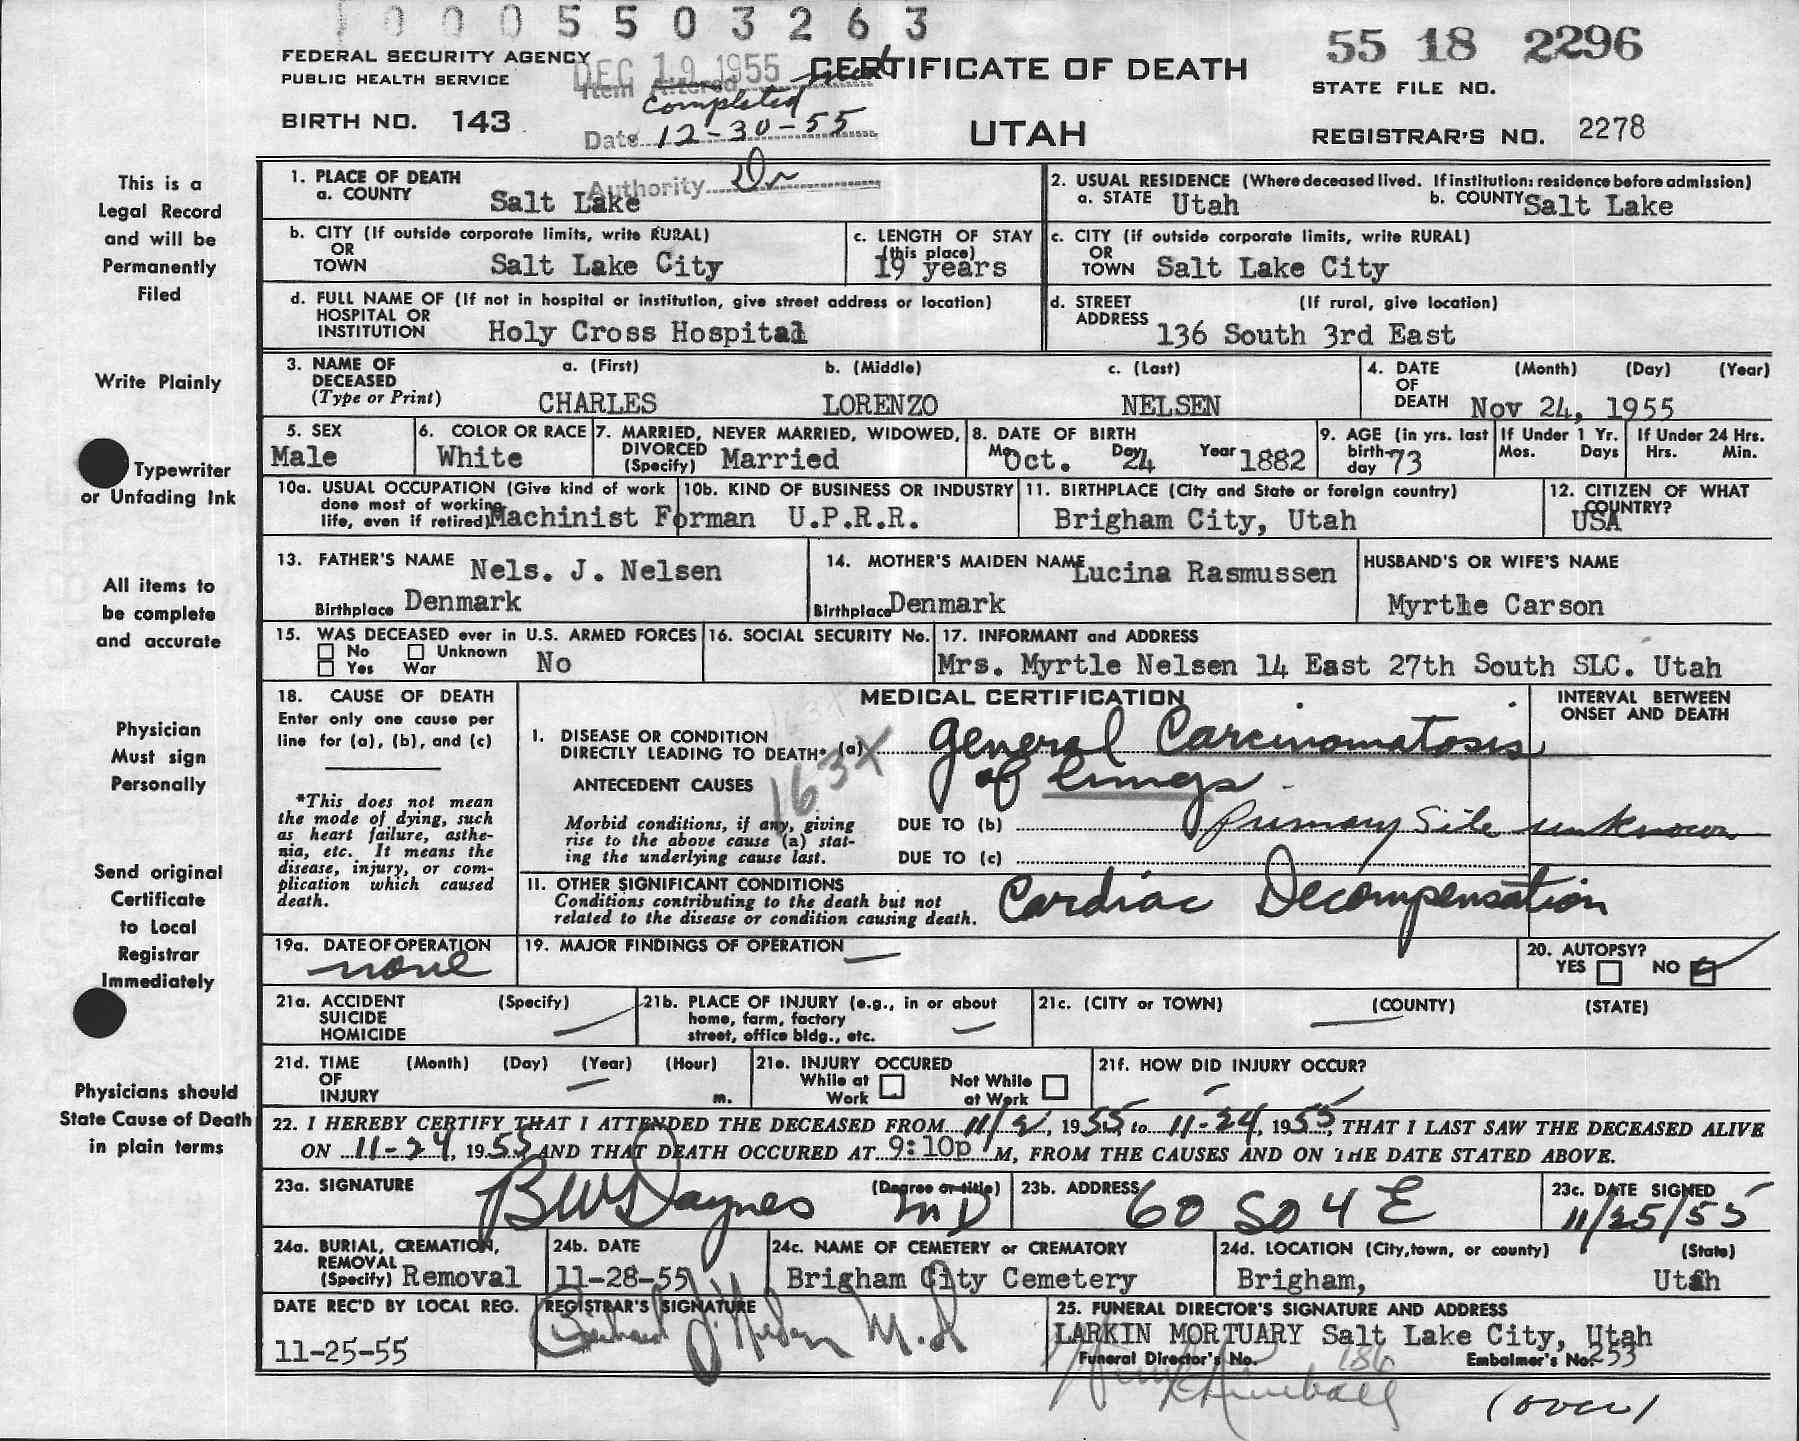 0 0 0 5 5 0 3 2 6 3
FEDERAL SECURITY AGENCY
PUBLIC HEALTH SERVICE
DEC 19 1955
Item Altered
Completed
Date 12-30-55
Authority Dr
CERTIFICATE OF DEATH
UTAH
55 18 2296
STATE FILE NO.
BIRTH NO. 143
REGISTRAR'S NO. 2278
This is a
Legal Record
and will be
Permanently
Filed
Write Plainly
Typewriter
or Unfading Ink
All items to
be complete
and accurate
Physician
Must sign
Personally
Send original
Certificate
to Local
Registrar
Immediately
Physicians should
State Cause of Death
in plain terms
1. PLACE OF DEATH
a. COUNTY Salt Lake
2. USUAL RESIDENCE (Where deceased lived. If institution: residence before admission)
a. STATE Utah b. COUNTY Salt Lake
b. CITY (If outside corporate limits, write RURAL)
OR
TOWN Salt Lake City
c. LENGTH OF STAY
(this place)
19 years
c. CITY (if outside corporate limits, write RURAL)
OR
TOWN Salt Lake City
d. FULL NAME OF (If not in hospital or institution, give street address or location)
HOSPITAL OR
INSTITUTION Holy Cross Hospital
d. STREET (If rural, give location)
ADDRESS 136 South 3rd East
3. NAME OF a. (First) b. (Middle) c. (Last)
DECEASED
(Type or Print) CHARLES LORENZO NELSEN
4. DATE (Month) (Day) (Year)
OF
DEATH Nov 24, 1955
5. SEX
Male
6. COLOR OR RACE
White
7. MARRIED, NEVER MARRIED, WIDOWED,
DIVORCED
(Specify) Married
8. DATE OF BIRTH
Mo Oct. Day 24 Year 1882
9. AGE (in yrs. last
birth-
day 73
If Under 1 Yr.
Mos. Days
If Under 24 Hrs.
Hrs. Min.
10a. USUAL OCCUPATION (Give kind of work
done most of working
life, even if retired) Machinist Forman
10b. KIND OF BUSINESS OR INDUSTRY
U.P.R.R.
11. BIRTHPLACE (City and State or foreign country)
Brigham City, Utah
12. CITIZEN OF WHAT
COUNTRY?
USA
13. FATHER'S NAME Nels. J. Nelsen
Birthplace Denmark
14. MOTHER'S MAIDEN NAME Lucina Rasmussen
Birthplace Denmark
HUSBAND'S OR WIFE'S NAME
Myrthe Carson
15. WAS DECEASED ever in U.S. ARMED FORCES
No Unknown
Yes War No
16. SOCIAL SECURITY No.
17. INFORMANT and ADDRESS
Mrs. Myrtle Nelsen 14 East 27th South SLC. Utah
18. CAUSE OF DEATH
Enter only one cause per
line for (a), (b), and (c)
*This does not mean
the mode of dying, such
as heart failure, asthe-
nia, etc. It means the
disease, injury, or com-
plication which caused
death.
MEDICAL CERTIFICATION
INTERVAL BETWEEN
ONSET AND DEATH
I. DISEASE OR CONDITION
DIRECTLY LEADING TO DEATH* (a) General Carcinomatosis
of lungs
163X
ANTECEDENT CAUSES
Morbid conditions, if any, giving
rise to the above cause (a) stat-
ing the underlying cause last.
DUE TO (b) Primary Site unknown
DUE TO (c)
II. OTHER SIGNIFICANT CONDITIONS
Conditions contributing to the death but not
related to the disease or condition causing death.
Cardiac Decompensation
19a. DATE OF OPERATION
none
19. MAJOR FINDINGS OF OPERATION
20. AUTOPSY?
YES NO
21a. ACCIDENT (Specify)
SUICIDE
HOMICIDE
21b. PLACE OF INJURY (e.g., in or about
home, farm, factory
street, office bldg., etc.
21c. (CITY or TOWN) (COUNTY) (STATE)
21d. TIME (Month) (Day) (Year) (Hour)
OF
INJURY m.
21e. INJURY OCCURED
While at Work Not While at Work
21f. HOW DID INJURY OCCUR?
22. I HEREBY CERTIFY THAT I ATTENDED THE DECEASED FROM 11/2, 1955, to 11-24, 1955, THAT I LAST SAW THE DECEASED ALIVE
ON 11-24, 1955 AND THAT DEATH OCCURED AT 9:10p M, FROM THE CAUSES AND ON THE DATE STATED ABOVE.
23a. SIGNATURE (Degree or title)
BW Daynes MD
23b. ADDRESS
60 So 4 E
23c. DATE SIGNED
11/25/55
24a. BURIAL, CREMATION,
REMOVAL
(Specify) Removal
24b. DATE
11-28-55
24c. NAME OF CEMETERY or CREMATORY
Brigham City Cemetery
24d. LOCATION (City, town, or county) (State)
Brigham, Utah
DATE REC'D BY LOCAL REG.
11-25-55
REGISTRAR'S SIGNATURE
M.D
25. FUNERAL DIRECTOR'S SIGNATURE AND ADDRESS
LARKIN MORTUARY Salt Lake City, Utah
Funeral Director's No. 136 Embalmer's No. 253
Kimball
(over)